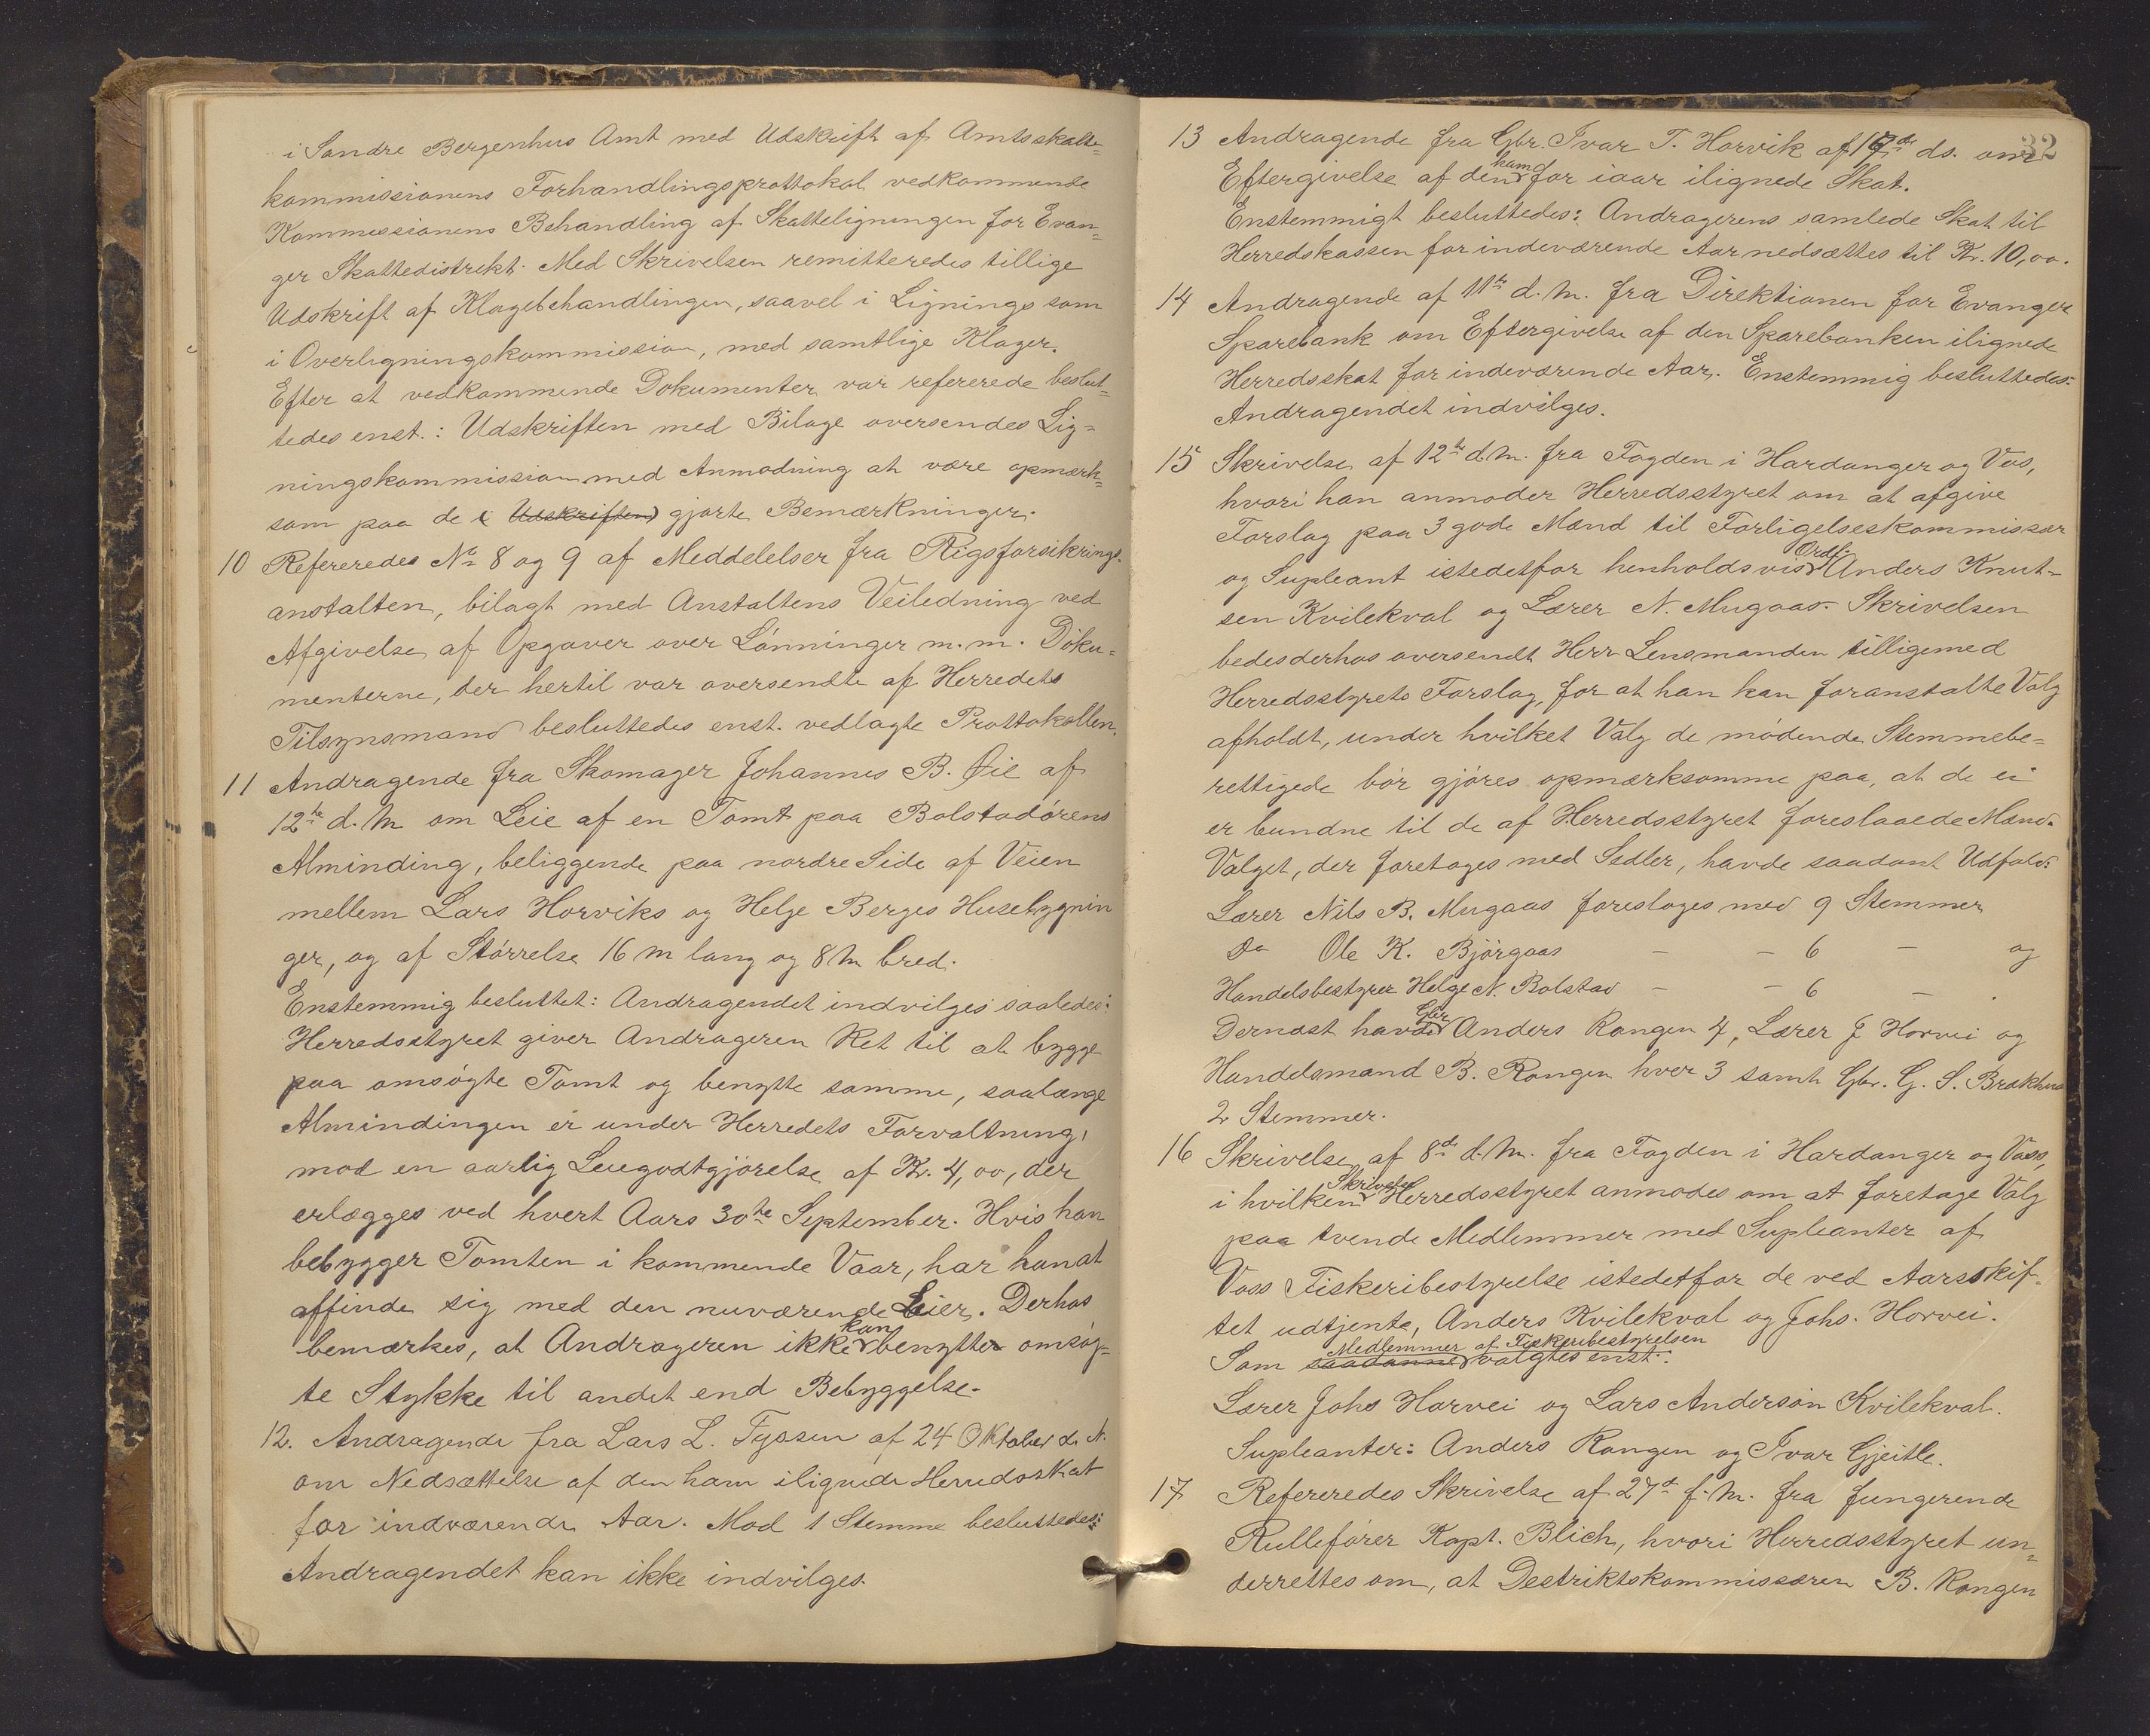 i Søndre Bergenhus Amt med Udskrift af Amtsskatte-
kommissionens Forhandlingsprottokol vedkommende
Kommissionens Behandling af Skatteligningen for Evan-
ger Skattedistrikt. Med Skrivelsen remitteredes tillige
Udskrift af Klagebehandlingen, saavel i Lignings som
i Overligningskommission, med samtlige Klager.
Efter at vedkommende Dokumenter var refererede beslut-
tedes enst.: Udskriften med Bilage oversendes Lig-
ningskommission med Anmodning at være opmærk-
som paa de (i Udskriften) gjorte Bemærkninger.
10 Refereredes No 8 og 9 af Meddelelser fra Rigsforsikrings-
anstalten, bilagt med Anstaltens Veiledning ved
Afgivelse af Opgaver over Lønninger m.m. Doku-
menterne, der hertil var oversendte af Herredets
Tilsynsmand besluttedes enst. vedlagte Prottokollen.
11 Andragende fra Skomager Johannes B. Øie af
12te d.M. om Leie af en Tomt paa Bolstadørens
Alminding, beliggende paa nordre Side af Veien
mellem Lars Horviks og Helge Berges Husebygnin
ger, og af Størrelse 16 m lang og 8 m bred.
Enstemmig besluttet: Andragendet indvilges saaledes:
Herredsstyret giver Andrageren Ret til at bygge
paa omsøgte Tomt og benytte samme, saalænge
Almindingen er under Herredets Forvaltning,
mod en aarlig Leiegodtgjørelse af Kr. 4,00, der
erlægges ved hvert Aars 30te September. Hvis han
bebygger Tomten i kommende Vaar, har han at
affinde sig med den nuværende Leier. Derhos
bemærkes, at Andrageren ikke kan benytter omsøg-
te Stykke til andet end Bebyggelse.
12. Andragende fra Lars L. Fyssen af 24 Oktober d. A.
om Nedsættelse af den ham ilignede Herredsskat
for indværende Aar. Mod 1 Stemme besluttedes:
Andragendet kan ikke indvilges.
32
13 Andragende fra Gbr. Ivar T. Horvik af ds. om
Eftergivelse af den ham for iaar ilignede Skat.
Enstemmigt besluttedes: Andragerens samlede Skat til
Herredskassen for indeværende Aar nedsættes til Kr. 10,00.
14 Andragende af 11te d.M. fra Direktionen for Evanger
Sparebank om Eftergivelse af den Sparebanken ilignede
Herredsskat for indeværende Aar. Enstemmig besluttedes:
Andragendet indvilges.
15 Skrivelse af 12te d.M. fra Fogden i Hardanger og Vos,
hvori han anmoder Herredsstyret om at afgive
Forslag paa 3 gode Mænd til Forligelseskommissær
og Supleant istedetfor henholdsvis Ordf. Anders Knut-
sen Kvilekval og Lærer N. Mugaas. Skrivelsen
bedes derhos oversendt Herr Lensmanden tilligemed
Herredsstyrets Forslag, for at han kan foranstalte Valg
afholdt, under hvilket Valg de mødende Stemmebe-
rettigede bør gjøres opmærksomme paa, at de ei
er bundne til de af Herredsstyret foreslaaede Mænd.
Valget, der foretages med Sedler, havde saadant Udfald:
Lærer Nils B. Mugaas foreslages med 9 Stemmer
Do Ole K. Bjørgaas — — 6 — og
Handelsbestyrer Helge N. Bolstad — — 6 — .
Dernæst havde Gbr. Anders Rongen 4, Lærer J Horvei og
Handelsmand B. Rongen hver 3 samt Gbr. G. S. Brækhus
2 Stemmer.
16 Skrivelse af 8de d.M. fra Fogden i Hardanger og Voss,
i hvilken Skrivelse Herredsstyret anmodes om at foretage Valg
paa tvende Medlemmer med Supleanter af
Voss Fiskeribestyrelse istedetfor de ved Aarsskif-
tet udtjente, Anders Kvilekval og Johs. Horvei.
Som saadanne Medlemmer af Fiskeribestyrelsen valgtes enst.:
Lærer Johs Horvei og Lars Anderson Kvilekval.
Supleanter: Anders Rongen og Ivar Gjeitle.
17 Refereredes Skrivelse af 27d f.M. fra fungerende
Rullefører Kapt. Blich, hvori Herredsstyret un-
derrettes om, at Destriktskommissæren B. Rongen